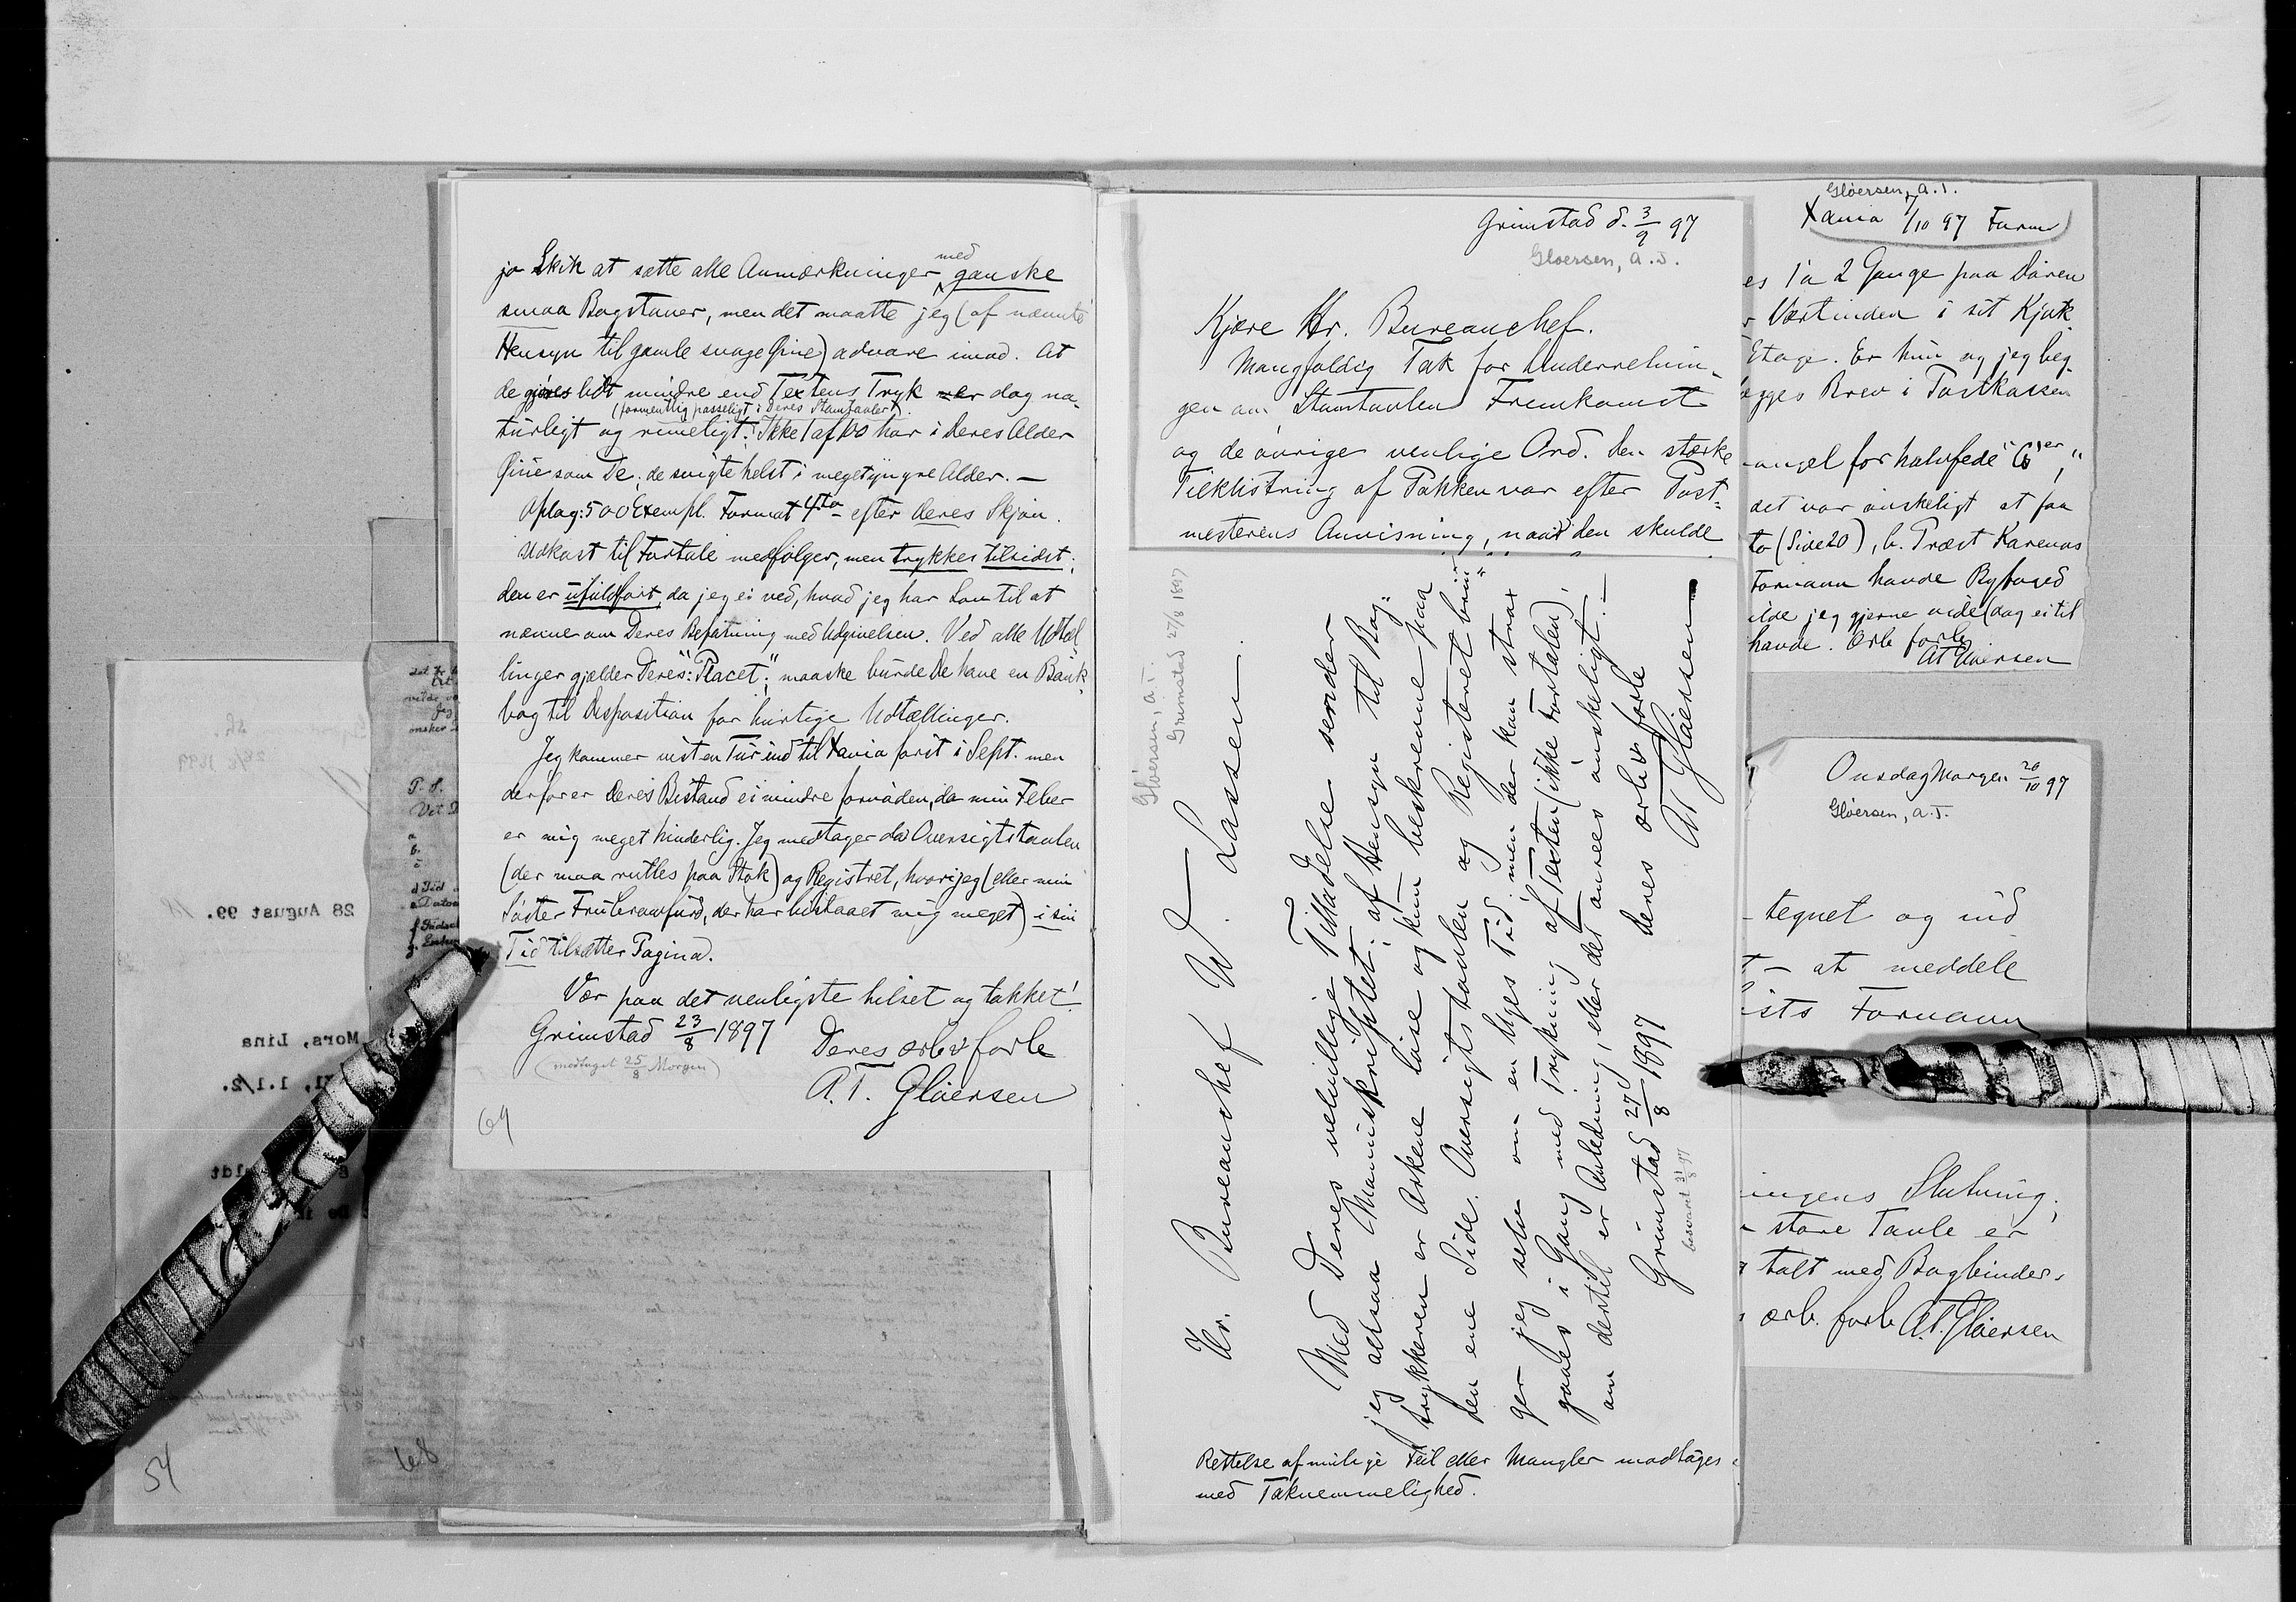 ja Skik at sætte alle Anmærkninger med ganske
smaa Bogstaver, men det maatte jeg (af nævnte
Hensyn til gamle svage Øine) advare imod. At
de gjøres lidt mindre end Textens Tryk er dog na-
(formentlig passeligt i Deres Stamtavler)
turligt og rimeligt. Ikke 1 af 100 har i Deres Alder
Øine som De; de svigte helst i meget yngre Alder. —
Oplag: 500 Exempl. Format 4to efter Deres Skjøn.
Udkast til Fortale medfølger, men trykkes tilsidst;
den er ufuldført, da jeg ei ved, hvad jeg har Lov til at
nævne om Deres Befatning med Udgivelsen. Ved alle Udtæl-
linger gjælder Deres: "Placet"; maaske burde De have en Bank-
bog til Disposition for hurtige Udtællinger.
Jeg kommer vist en Tur ind til Xania først i Sept. men
derfor er Deres Bistand ei mindre fornøden, da min Feber
er mig meget hinderlig. Jeg medtager da Oversigtstavlen
(der maa rulles paa Stok) og Registret, hvori jeg (eller min
Søster Fru Crawfurd, der har bistaaet mig meget) i sin
Tid tilsætter Pagina.
Vær paa det venligste hilset og takket!
Grimstad 23/8 1897
Deres ærb forb
(modtaget 25/8 Morgen)
A. T. Gløersen
69
28 August 99.
Mors, Lina
54
68
Grimstad d. 3/9 97
Gloersen, A. T.
Kjære Hr. Bureauchef.
Mangfoldig Tak for Underretnin-
gen om Stamtavlens Fremkomst
og de øvrige venlige Ord. Den stærke
Tilklistring af Pakken var efter Post-
mesterens Anvisning, naar den skulde
Gløersen, A. T.
Grimstad 27/8 1897
Hr. Bureauchef W. Lassen.
Med Deres velvillige Tilladelse sender
jeg altsaa Manuskriptet; af Hensyn til Bog-
trykkeren er Arkene løse og kun beskrevne paa
den ene Side. Oversigtstavlen og Registeret brin-
ger jeg selv om en Uges Tid; men der kan strax
gaaes i Gang med Trykning af Texten (ikke Fortalen),
om dertil er Anledning, eller det ansees ønskeligt. —
Deres ærb forb
A T Gløersen
Grimstad 27/8 1897
besvaret 31/8 97
Rettelse af mulige Feil eller Mangler modtages
med Taknemmelighed.
Gløersen, A. T.
Xania 1/10 97 Form
es 1 a 2 Gange paa Døren
Værtinden i sit Kjøk
Etage. Er hun og jeg beg
ægges Brev i Postkassen
angel for halvfede "G'er",
det var ønskeligt at faa
to (Side 20), b. Præst Karenas
Fornavn havde Byfoged
ilde jeg gjerne vide (dog ei til
havde. Ærb forb
AT Gløersen
Onsdag Morgen 20/10 97
Gløersen, A. T.
tegnet og ind
t — at meddele
ists Fornavn
ingens Slutning;
store Tavle er
talt med Bogbinder.
ærb. forb A. T. Gløersen